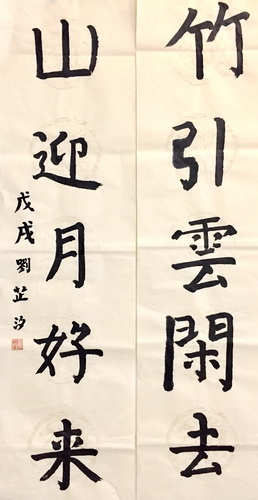 竹引雲閑去
山迎月好来
戊戌劉芷汐